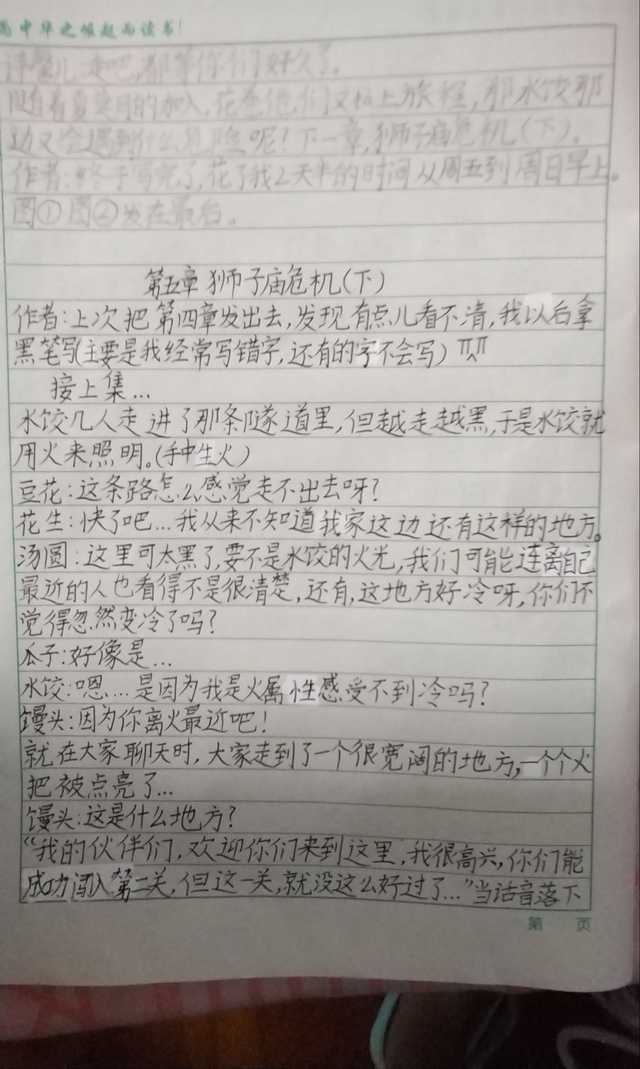 为中华之崛起而读书!
评婴儿凄吧,都等你们好久了。
随着夏实月的加入,花卷他们又杠上旅程,那水饺那
边又会遇到什么危险呢?下一章,狮子庙危机(下)。
作者:终于写完了,花了我2天半的时间从周五到周日早上。
图①图②发在最后。
第五章 狮子庙危机(下)
作者:上次把第四章发出去,发现有点儿看不清,我以后拿
黑笔写(主要是我经常写错字,还有的字不会写)
接上集...
水饺几人走进了那条隧道里,但越走越黑,于是水饺就
用火来照明。(手中生火)
豆花:这条路怎么感觉走不出去呀?
花生:快了吧...我从来不知道我家这边还有这样的地方。
汤圆:这里可太黑了,要不是水饺的火光,我们可能连离自己
最近的人也看得不是很清楚,还有,这地方好冷呀,你们不
觉得忽然变冷了吗?
瓜子:好像是...
水饺:嗯....是因为我是火属性感受不到冷吗?
馒头:因为你离火最近吧!
就在大家聊天时,大家走到了一个很宽阔的地方,一个个火
把被点亮了...
馒头:这是什么地方?
“我的伙伴们,欢迎你们来到这里,我很高兴,你们能
成功闯入第二关,但这一关,就没这么好过了...”当话音落下
第 页